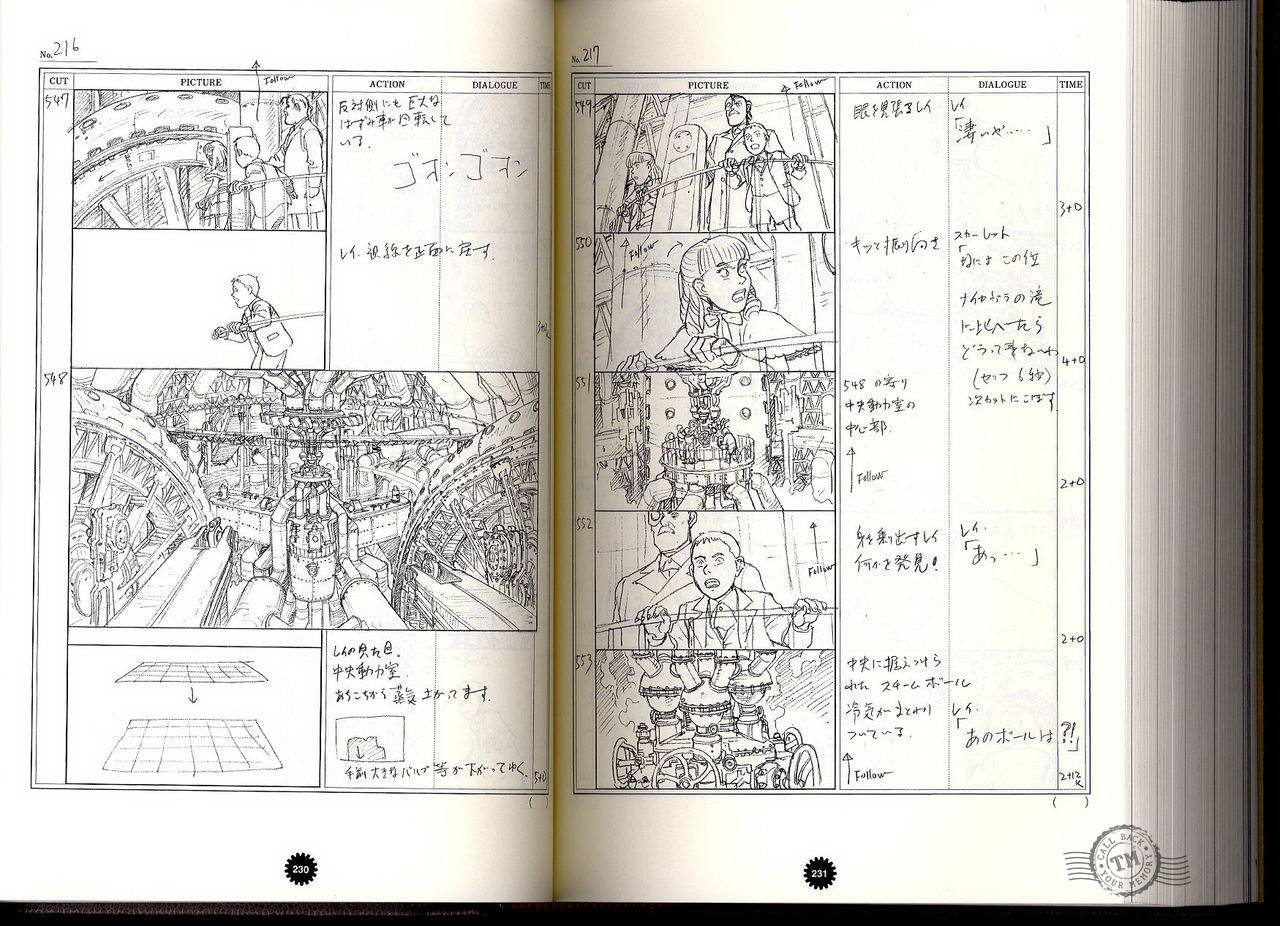 No.216
CUT PICTURE ACTION DIALOGUE TIME
Follow
547
反対側にも巨大な
はずみ車が回転して
いる。
ゴオンゴオン
レイ、視線を正面に戻す。
548
レイの見た目。
中央動力室。
あちこちから蒸気上がってます。
手前大きなバルブ等が下がってゆく。
5+0
( )
230
No.217
CUT PICTURE ACTION DIALOGUE TIME
Follow
549
眼を見張るレイ
レイ
「凄いや……」
3+0
550
Follow
キッと振り向き
スカーレット
「なによ この位
ナイヤガラの滝
に比べたら
どうって事ないわ
(セリフ 6秒)
次カットにこぼす
4+0
551
548の寄り
中央動力室の
中心部。
Follow
2+0
552
Follow
身を乗出すレイ
何かを発見!
レイ
「あっ…」
2+0
553
中央に据えつけら
れた スチームボール
冷気がまとわり
ついている。
Follow
レイ
「あのボールは?!」
2+12
K
( )
231
CALL BACK
TM
YOUR MEMORY